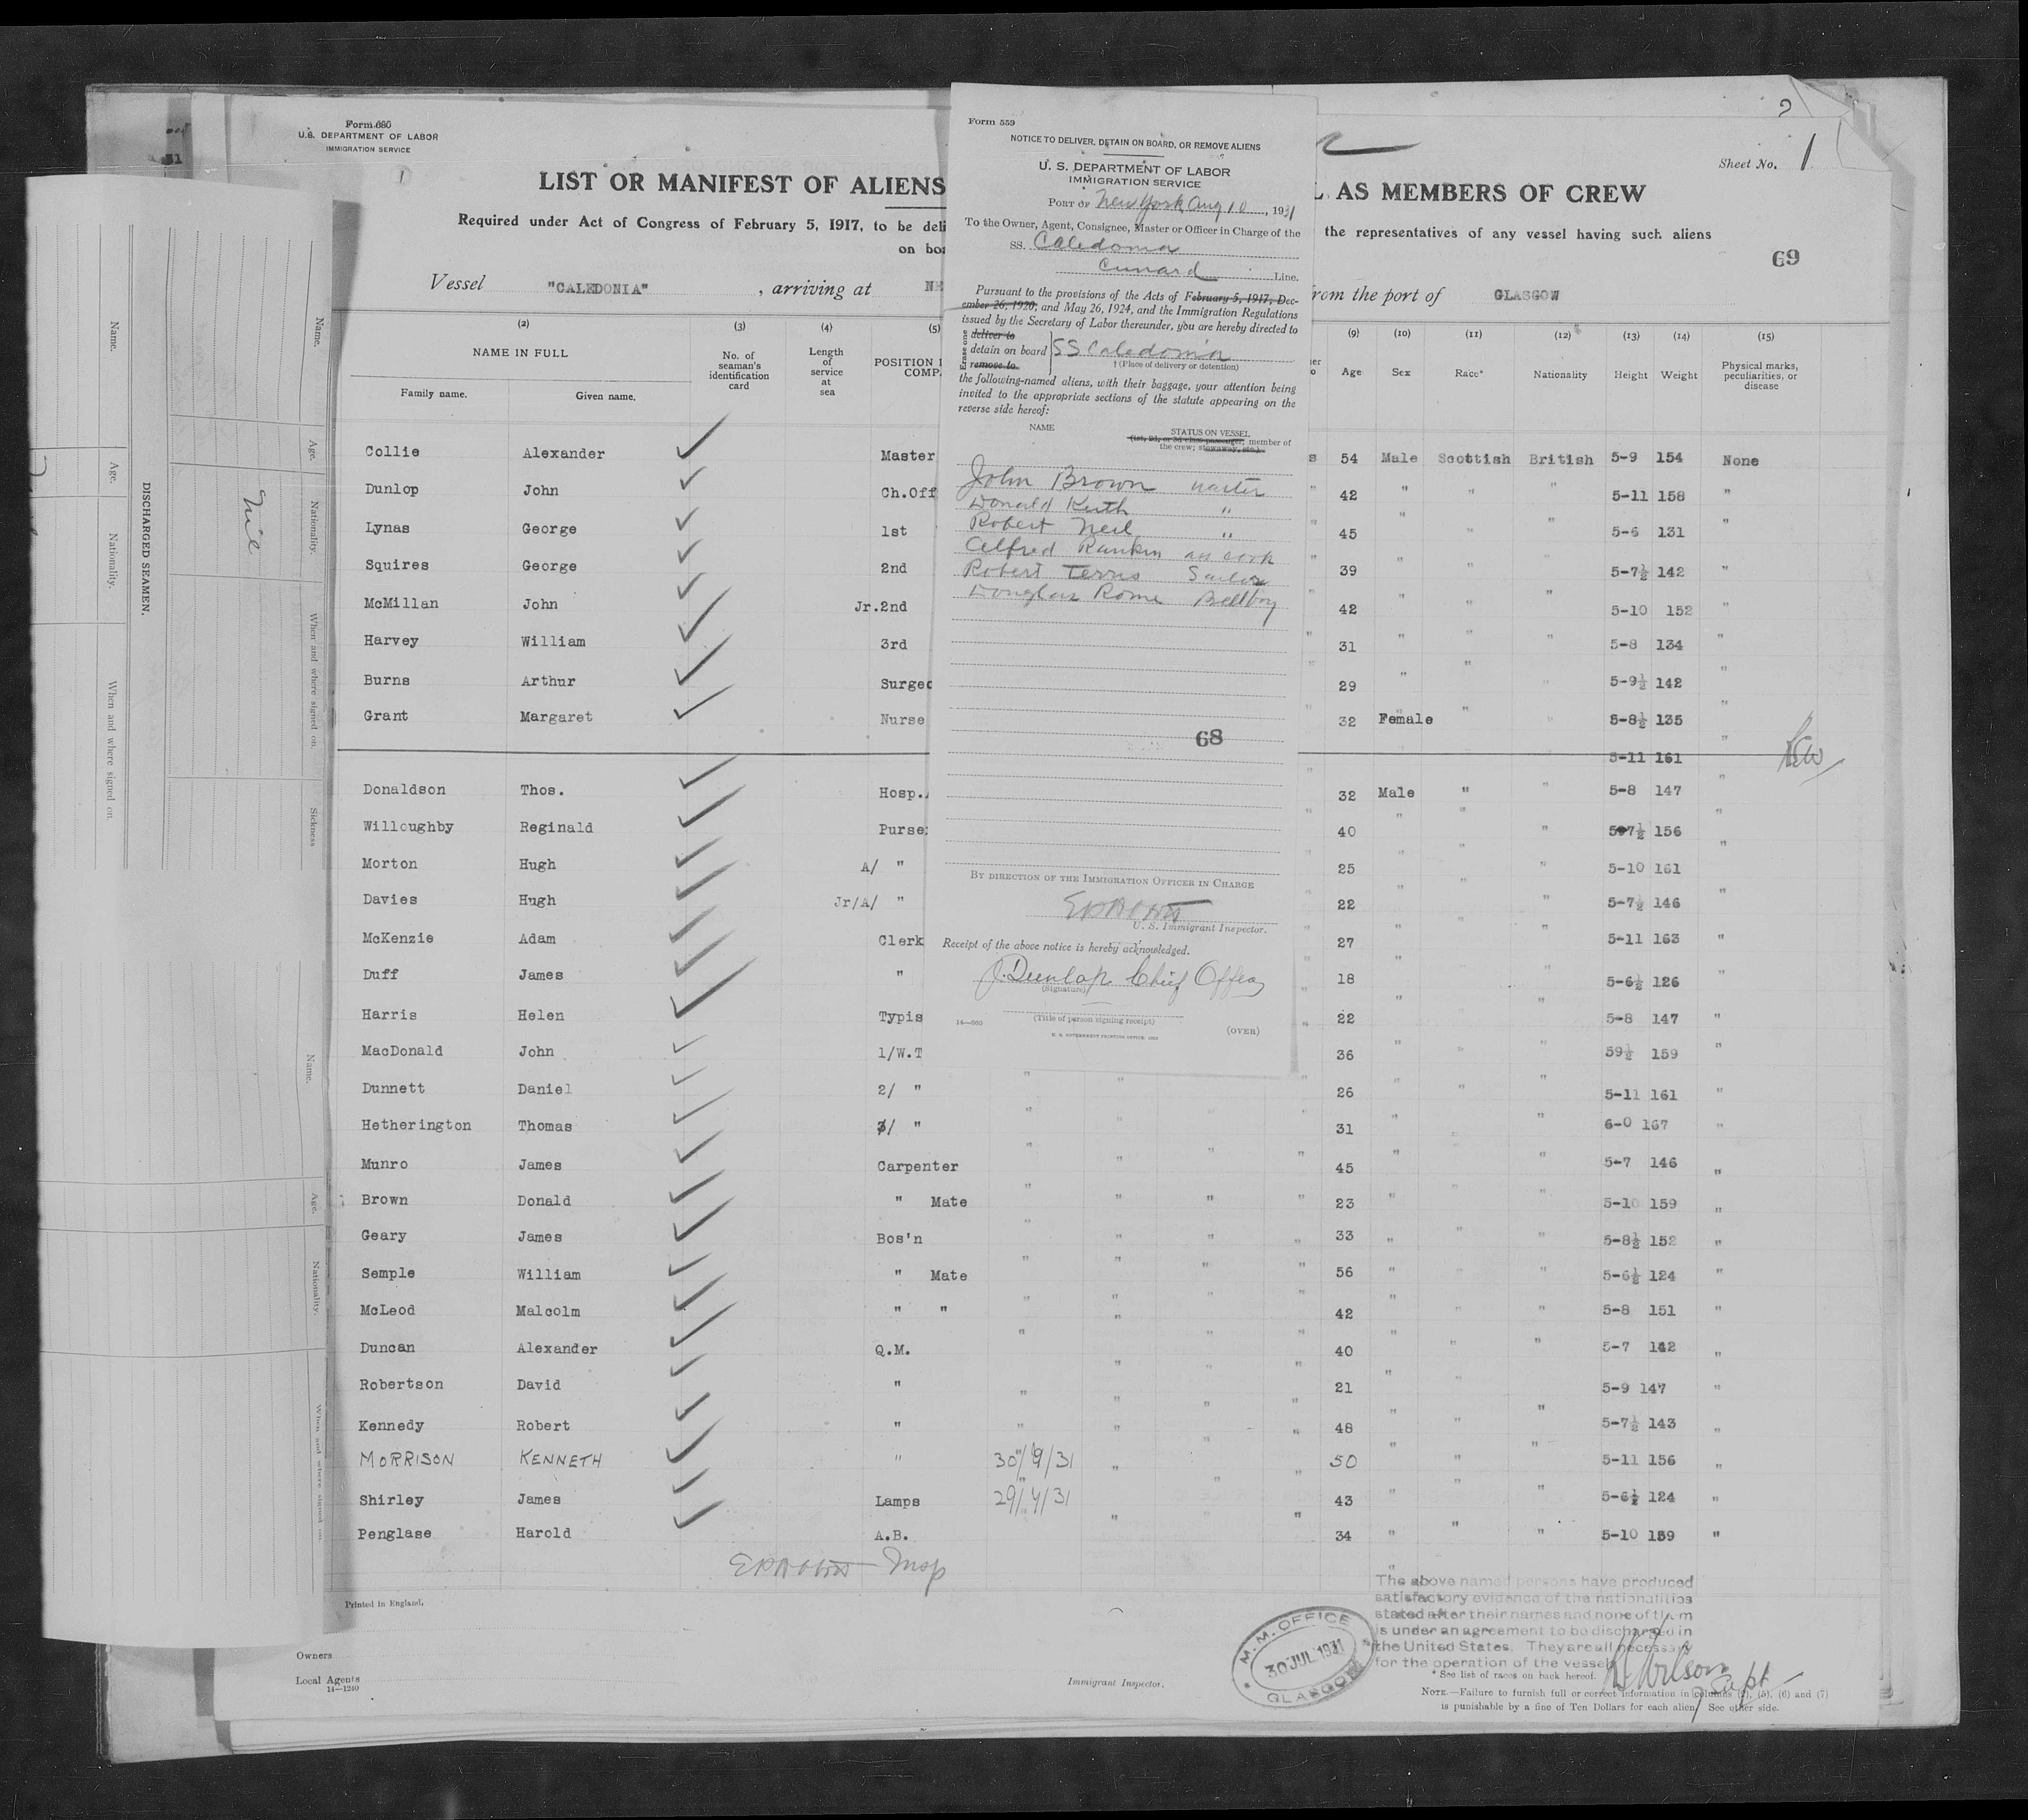 Form 680
U.S. DEPARTMENT OF LABOR
IMMIGRATION SERVICE
1
2
Sheet No. 1
LIST OR MANIFEST OF ALIENS
L AS MEMBERS OF CREW
Required under Act of Congress of February 5, 1917, to be deli
the representatives of any vessel having such aliens
on boa
69
Vessel "CALEDONIA", arriving at NE
from the port of GLASGOW
(2) (3) (4) (5) (9) (10) (11) (12) (13) (14) (15)
NAME IN FULL
Family name. Given name.
No. of seaman's identification card
Length of service at sea
POSITION I
COMP
Age Sex Race* Nationality Height Weight Physical marks, peculiarities, or disease
Collie Alexander Master 54 Male Scottish British 5-9 154 None
Dunlop John Ch.Off 42 " " " 5-11 158 "
Lynas George 1st 45 " " " 5-6 131 "
Squires George 2nd 39 " " " 5-7½ 142 "
McMillan John Jr.2nd 42 " " " 5-10 152 "
Harvey William 3rd 31 " " " 5-8 134 "
Burns Arthur Surgeo 29 " " " 5-9½ 142 "
Grant Margaret Nurse 32 Female " " 5-8½ 135 "
5-11 161 "
Donaldson Thos. Hosp. 32 Male " " 5-8 147 "
Willoughby Reginald Purse 40 " " " 5-7½ 156 "
Morton Hugh A/ " 25 " " " 5-10 161 "
Davies Hugh Jr/A/ " 22 " " " 5-7½ 146 "
McKenzie Adam Clerk 27 " " " 5-11 163 "
Duff James " 18 " " " 5-6½ 126 "
Harris Helen Typis 22 " " 5-8 147 "
MacDonald John 1/W.T 36 " " " 59½ 159 "
Dunnett Daniel 2/ " 26 " " " 5-11 161 "
Hetherington Thomas 3/ " 31 " " " 6-0 167 "
Munro James Carpenter 45 " " " 5-7 146 "
Brown Donald " Mate 23 " " " 5-10 159 "
Geary James Bos'n 33 " " " 5-8½ 152 "
Semple William " Mate 56 " " " 5-6½ 124 "
McLeod Malcolm " " 42 " " " 5-8 151 "
Duncan Alexander Q.M. 40 " " " 5-7 142 "
Robertson David " 21 " " " 5-9 147 "
Kennedy Robert " 48 " " " 5-7½ 143 "
MORRISON KENNETH " 30/9/31 50 " " " 5-11 156 "
Shirley James Lamps 43 " " " 5-6½ 124 "
Penglase Harold A.B. 34 " " " 5-10 159 "
Insp
Printed in England.
Owners
Local Agents
14—1240
Immigrant Inspector.
M.M. OFFICE
30 JUL 1931
GLASGOW
The above named persons have produced
satisfactory evidence of the nationalities
stated after their names and none of them
is under an agreement to be discharged in
the United States. They are all necessary
for the operation of the vessel
Wilson
Supt
* See list of races on back hereof.
NOTE.—Failure to furnish full or correct information in columns (2), (5), (6) and (7)
is punishable by a fine of Ten Dollars for each alien. See other side.
Form 559
NOTICE TO DELIVER, DETAIN ON BOARD, OR REMOVE ALIENS
U. S. DEPARTMENT OF LABOR
IMMIGRATION SERVICE
PORT OF New York, Aug 10, 1931
To the Owner, Agent, Consignee, Master or Officer in Charge of the
SS. Caledonia
Cunard Line.
Pursuant to the provisions of the Acts of February 5, 1917, Dec-
ember 26, 1920, and May 26, 1924, and the Immigration Regulations
issued by the Secretary of Labor thereunder, you are hereby directed to
Erase one
deliver to
detain on board
remove to
SS Caledonia
† (Place of delivery or detention)
the following-named aliens, with their baggage, your attention being
invited to the appropriate sections of the statute appearing on the
reverse side hereof:
NAME STATUS ON VESSEL
(1st, 2d, or 3d class passenger; member of
the crew; stowaway, etc.)
John Brown waiter
Donald Keith "
Robert Neil "
Alfred Rankin ass cook
Robert Terris Sailor
Douglas Rome Bellboy
68
BY DIRECTION OF THE IMMIGRATION OFFICER IN CHARGE
U. S. Immigrant Inspector.
Receipt of the above notice is hereby acknowledged.
J. Dunlop Chief Officer
(Signature)
(Title of person signing receipt)
14—660
(OVER)
U. S. GOVERNMENT PRINTING OFFICE
DISCHARGED SEAMEN.
Name. Age. Nationality. When and where signed on.
Name. Age. Nationality. When and where signed on. Sickness
Nil
Name. Age. Nationality. When and where signed on.